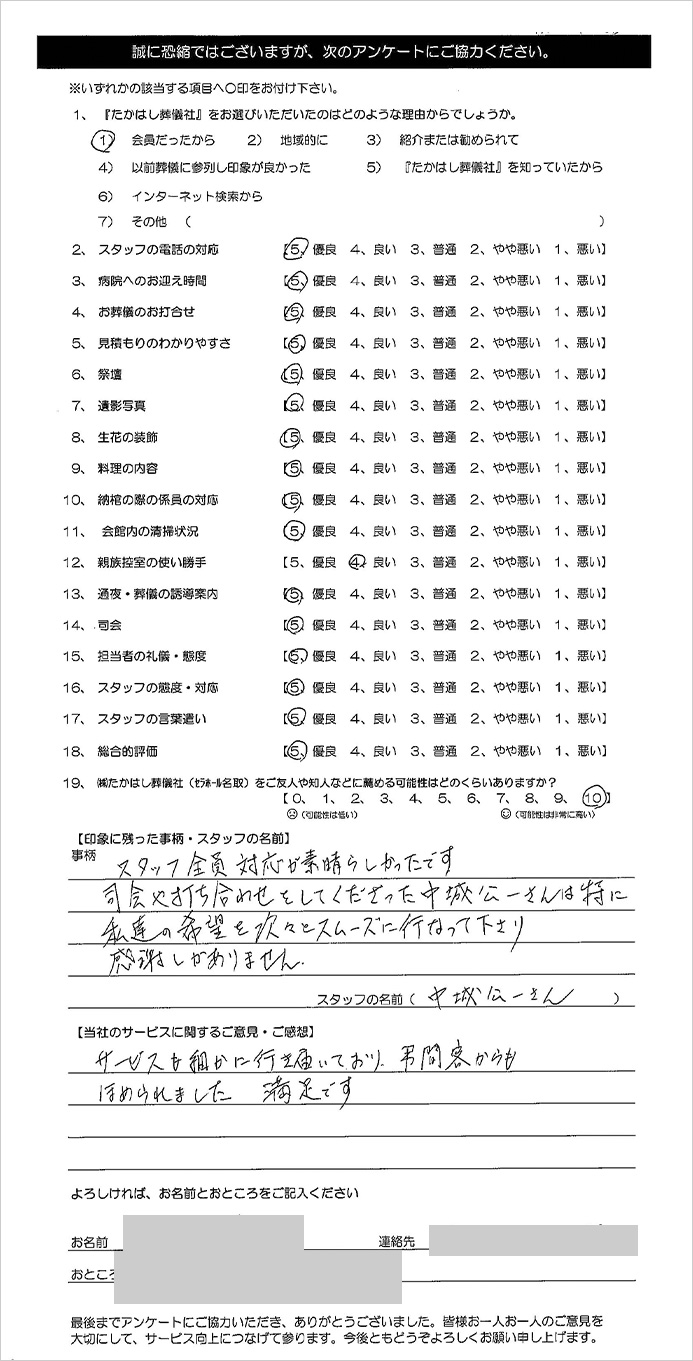 誠に恐縮ではございますが、次のアンケートにご協力ください。
※いずれかの該当する項目へ〇印をお付け下さい。
1、『たかはし葬儀社』をお選びいただいたのはどのような理由からでしょうか。
1） 会員だったから 2） 地域的に 3） 紹介または勧められて
4） 以前葬儀に参列し印象が良かった 5） 『たかはし葬儀社』を知っていたから
6） インターネット検索から
7） その他 （ ）
2、 スタッフの電話の対応 【5、優良 4、良い 3、普通 2、やや悪い 1、悪い】
3、 病院へのお迎え時間 【5、優良 4、良い 3、普通 2、やや悪い 1、悪い】
4、 お葬儀のお打合せ 【5、優良 4、良い 3、普通 2、やや悪い 1、悪い】
5、 見積もりのわかりやすさ 【5、優良 4、良い 3、普通 2、やや悪い 1、悪い】
6、 祭壇 【5、優良 4、良い 3、普通 2、やや悪い 1、悪い】
7、 遺影写真 【5、優良 4、良い 3、普通 2、やや悪い 1、悪い】
8、 生花の装飾 【5、優良 4、良い 3、普通 2、やや悪い 1、悪い】
9、 料理の内容 【5、優良 4、良い 3、普通 2、やや悪い 1、悪い】
10、 納棺の際の係員の対応 【5、優良 4、良い 3、普通 2、やや悪い 1、悪い】
11、 会館内の清掃状況 【5、優良 4、良い 3、普通 2、やや悪い 1、悪い】
12、 親族控室の使い勝手 【5、優良 4、良い 3、普通 2、やや悪い 1、悪い】
13、 通夜・葬儀の誘導案内 【5、優良 4、良い 3、普通 2、やや悪い 1、悪い】
14、 司会 【5、優良 4、良い 3、普通 2、やや悪い 1、悪い】
15、 担当者の礼儀・態度 【5、優良 4、良い 3、普通 2、やや悪い 1、悪い】
16、 スタッフの態度・対応 【5、優良 4、良い 3、普通 2、やや悪い 1、悪い】
17、 スタッフの言葉遣い 【5、優良 4、良い 3、普通 2、やや悪い 1、悪い】
18、 総合的評価 【5、優良 4、良い 3、普通 2、やや悪い 1、悪い】
19、 ㈱たかはし葬儀社（ｾﾗﾎｰﾙ名取）をご友人や知人などに薦める可能性はどのくらいありますか？
【0、 1、 2、 3、 4、 5、 6、 7、 8、 9、 10】
（可能性は低い） （可能性は非常に高い）
【印象に残った事柄・スタッフの名前】
事柄 スタッフ全員 対応が素晴らしかったです
司会や打ち合わせをしてくださった中城公一さんは特に
私達の希望を次々とスムーズに行なって下さり
感謝しかありません.
スタッフの名前（ 中城公一さん ）
【当社のサービスに関するご意見・ご感想】
サービスも細かに行き届いており、弔問客からも
ほめられました 満足です
よろしければ、お名前とおところをご記入ください
お名前 連絡先
おところ
最後までアンケートにご協力いただき、ありがとうございました。皆様お一人お一人のご意見を
大切にして、サービス向上につなげて参ります。今後ともどうぞよろしくお願い申し上げます。